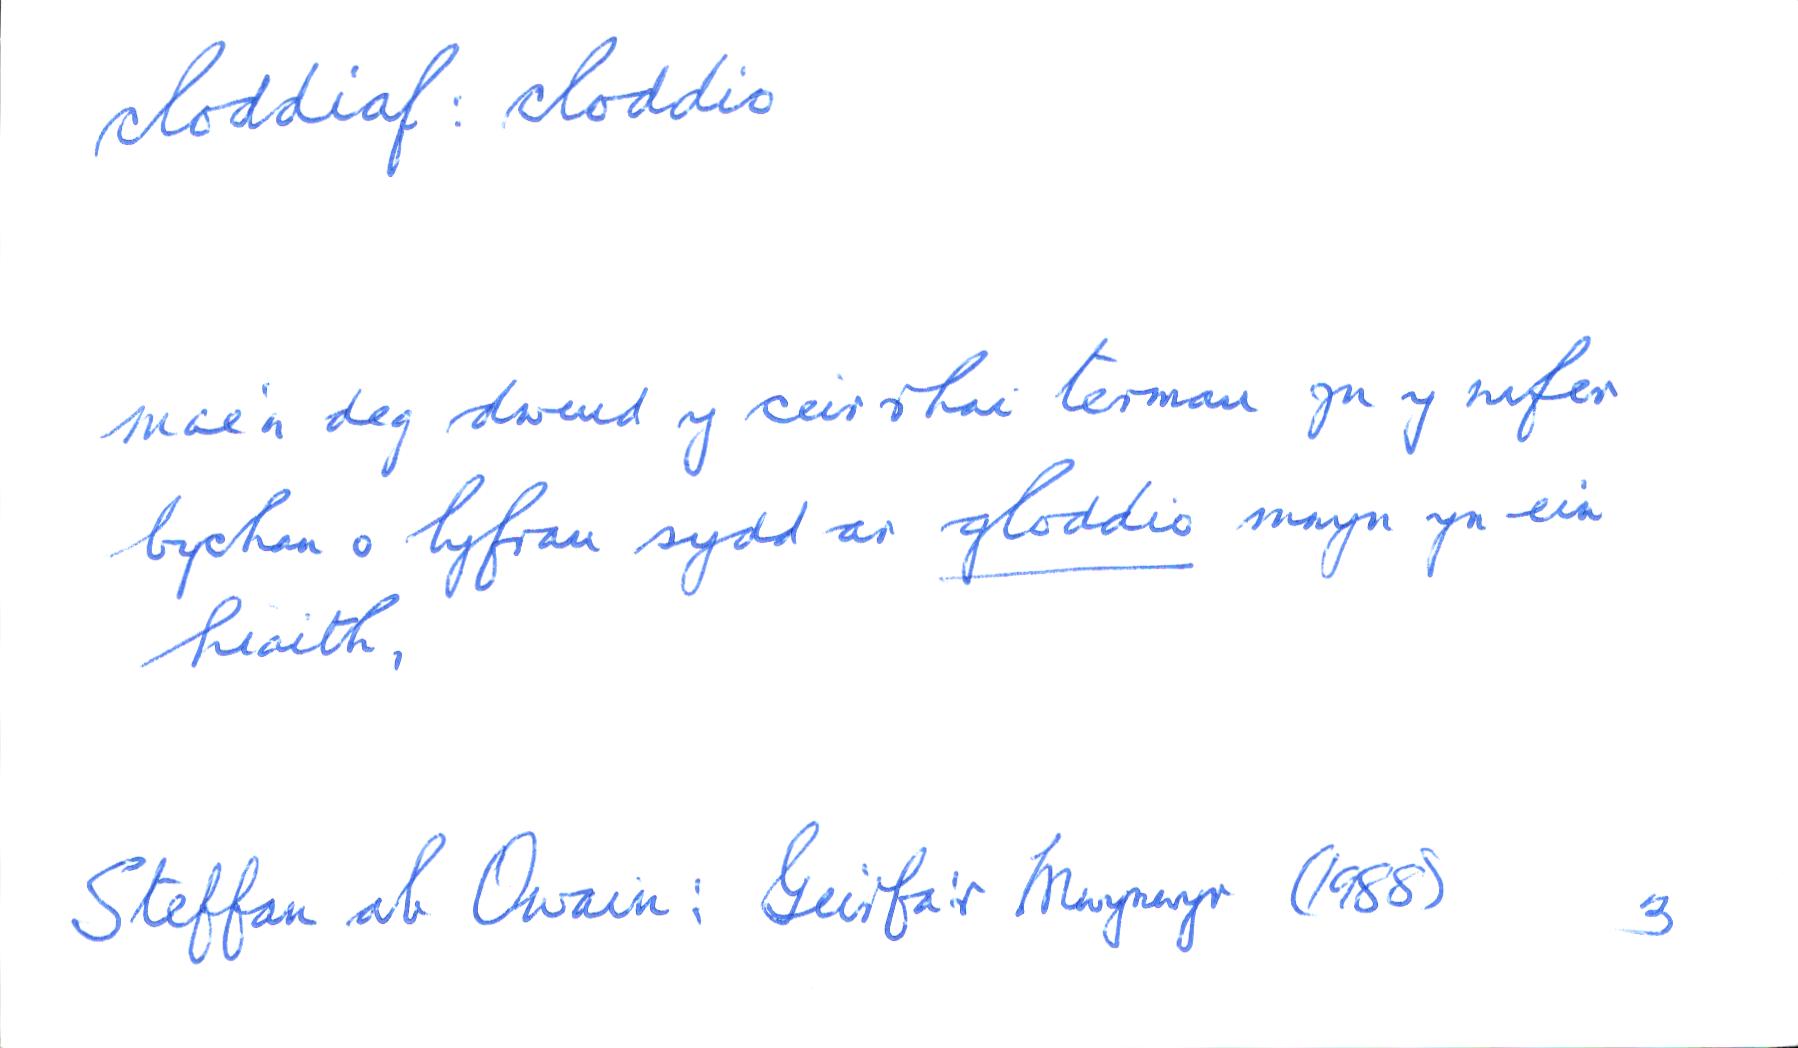 cloddiaf: cloddio
mae'n deg dweud y ceir rhai termau yn y nifer
bychan o lyfrau sydd ar gloddio mwyn yn ein
hiaith,
Steffan ab Owain: Geirfa'r Mwynwyr (1988) 3